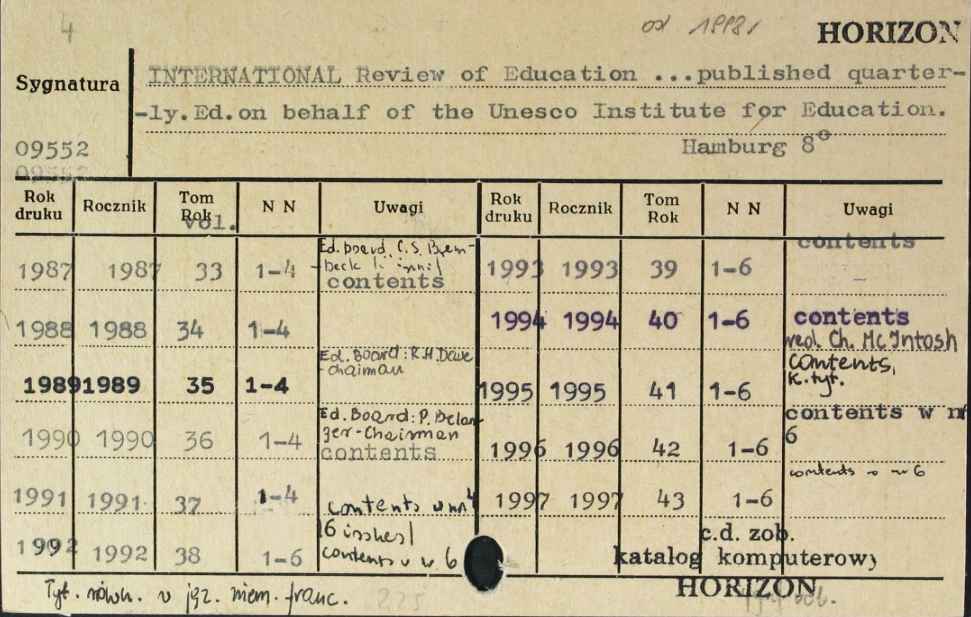 4
od 1998
HORIZON
Sygnatura
INTERNATIONAL Review of Education ...published quarter-
-ly.Ed.on behalf of the Unesco Institute for Education.
09552
Hamburg 8°
09552
Rok druku Rocznik Tom Rok vol. N N Uwagi Rok druku Rocznik Tom Rok N N Uwagi
1987 1987 33 1-4 Ed. board. C.S. Brem-
beck i inni/
contents
1988 1988 34 1-4
1989 1989 35 1-4 Ed. Board: R.H. Dave
-chairman
1990 1990 36 1-4 Ed. Board: P. Belan-
ger-Chairman
contents
1991 1991 37 1-4 contents w nr 4
1992 1992 38 1-6 /6 issues/
contents w nr 6
1993 1993 39 1-6 contents
1994 1994 40 1-6 contents
red. Ch. McIntosh
1995 1995 41 1-6 contents,
k. tyt.
1996 1996 42 1-6 contents w nr
6
1997 1997 43 1-6 contents w nr 6
c.d. zob.
katalog komputerowy
HORIZON
Tyt. równ. w jęz. niem. franc.
225